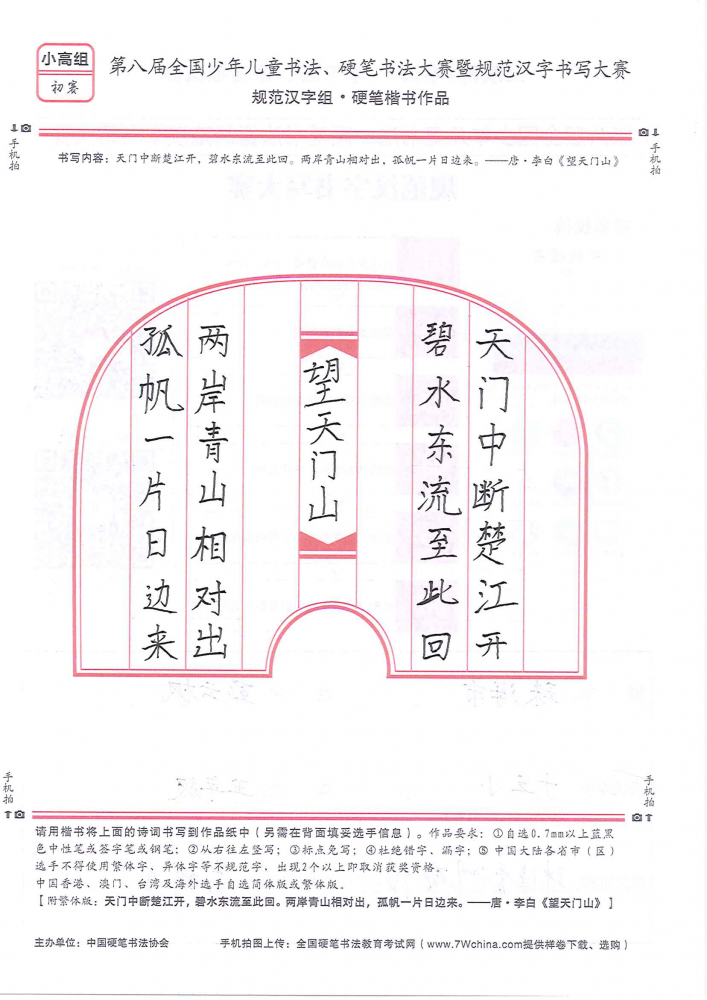 小高组
初赛
第八届全国少年儿童书法、硬笔书法大赛暨规范汉字书写大赛
规范汉字组·硬笔楷书作品
手机拍
手机拍
书写内容：天门中断楚江开，碧水东流至此回。两岸青山相对出，孤帆一片日边来。——唐·李白《望天门山》
天门中断楚江开
碧水东流至此回
望天门山
两岸青山相对出
孤帆一片日边来
手机拍
手机拍
请用楷书将上面的诗词书写到作品纸中（另需在背面填妥选手信息）。作品要求：①自选0.7mm以上蓝黑
色中性笔或签字笔或钢笔；②从右往左竖写；③标点免写；④杜绝错字、漏字；⑤中国大陆各省市（区）
选手不得使用繁体字、异体字等不规范字，出现2个以上即取消获奖资格。
中国香港、澳门、台湾及海外选手自选简体版或繁体版。
【附繁体版：天门中断楚江开，碧水东流至此回。两岸青山相对出，孤帆一片日边来。——唐·李白《望天门山》】
主办单位：中国硬笔书法协会
手机拍图上传：全国硬笔书法教育考试网（www.7Wchina.com提供样卷下载、选购）